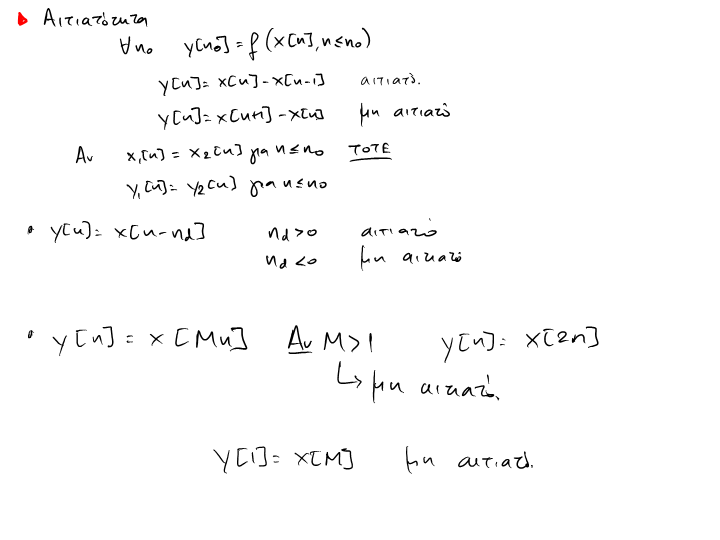 Αιτιατότητα
∀n₀ y[n₀] = f (x[n], n≤n₀)
y[n] = x[n] - x[n-1] αιτιατό.
y[n] = x[n+1] - x[n] μη αιτιατό
Αν x₁[n] = x₂[n] για n≤n₀ ΤΟΤΕ
y₁[n] = y₂[n] για n≤n₀
• y[n] = x[n-n_d] n_d>0 αιτιατό
n_d<0 μη αιτιατό
• y[n] = x[Mn] Αν M>1 y[n] = x[2n]
↳ μη αιτιατό.
y[1] = x[M] μη αιτιατό.